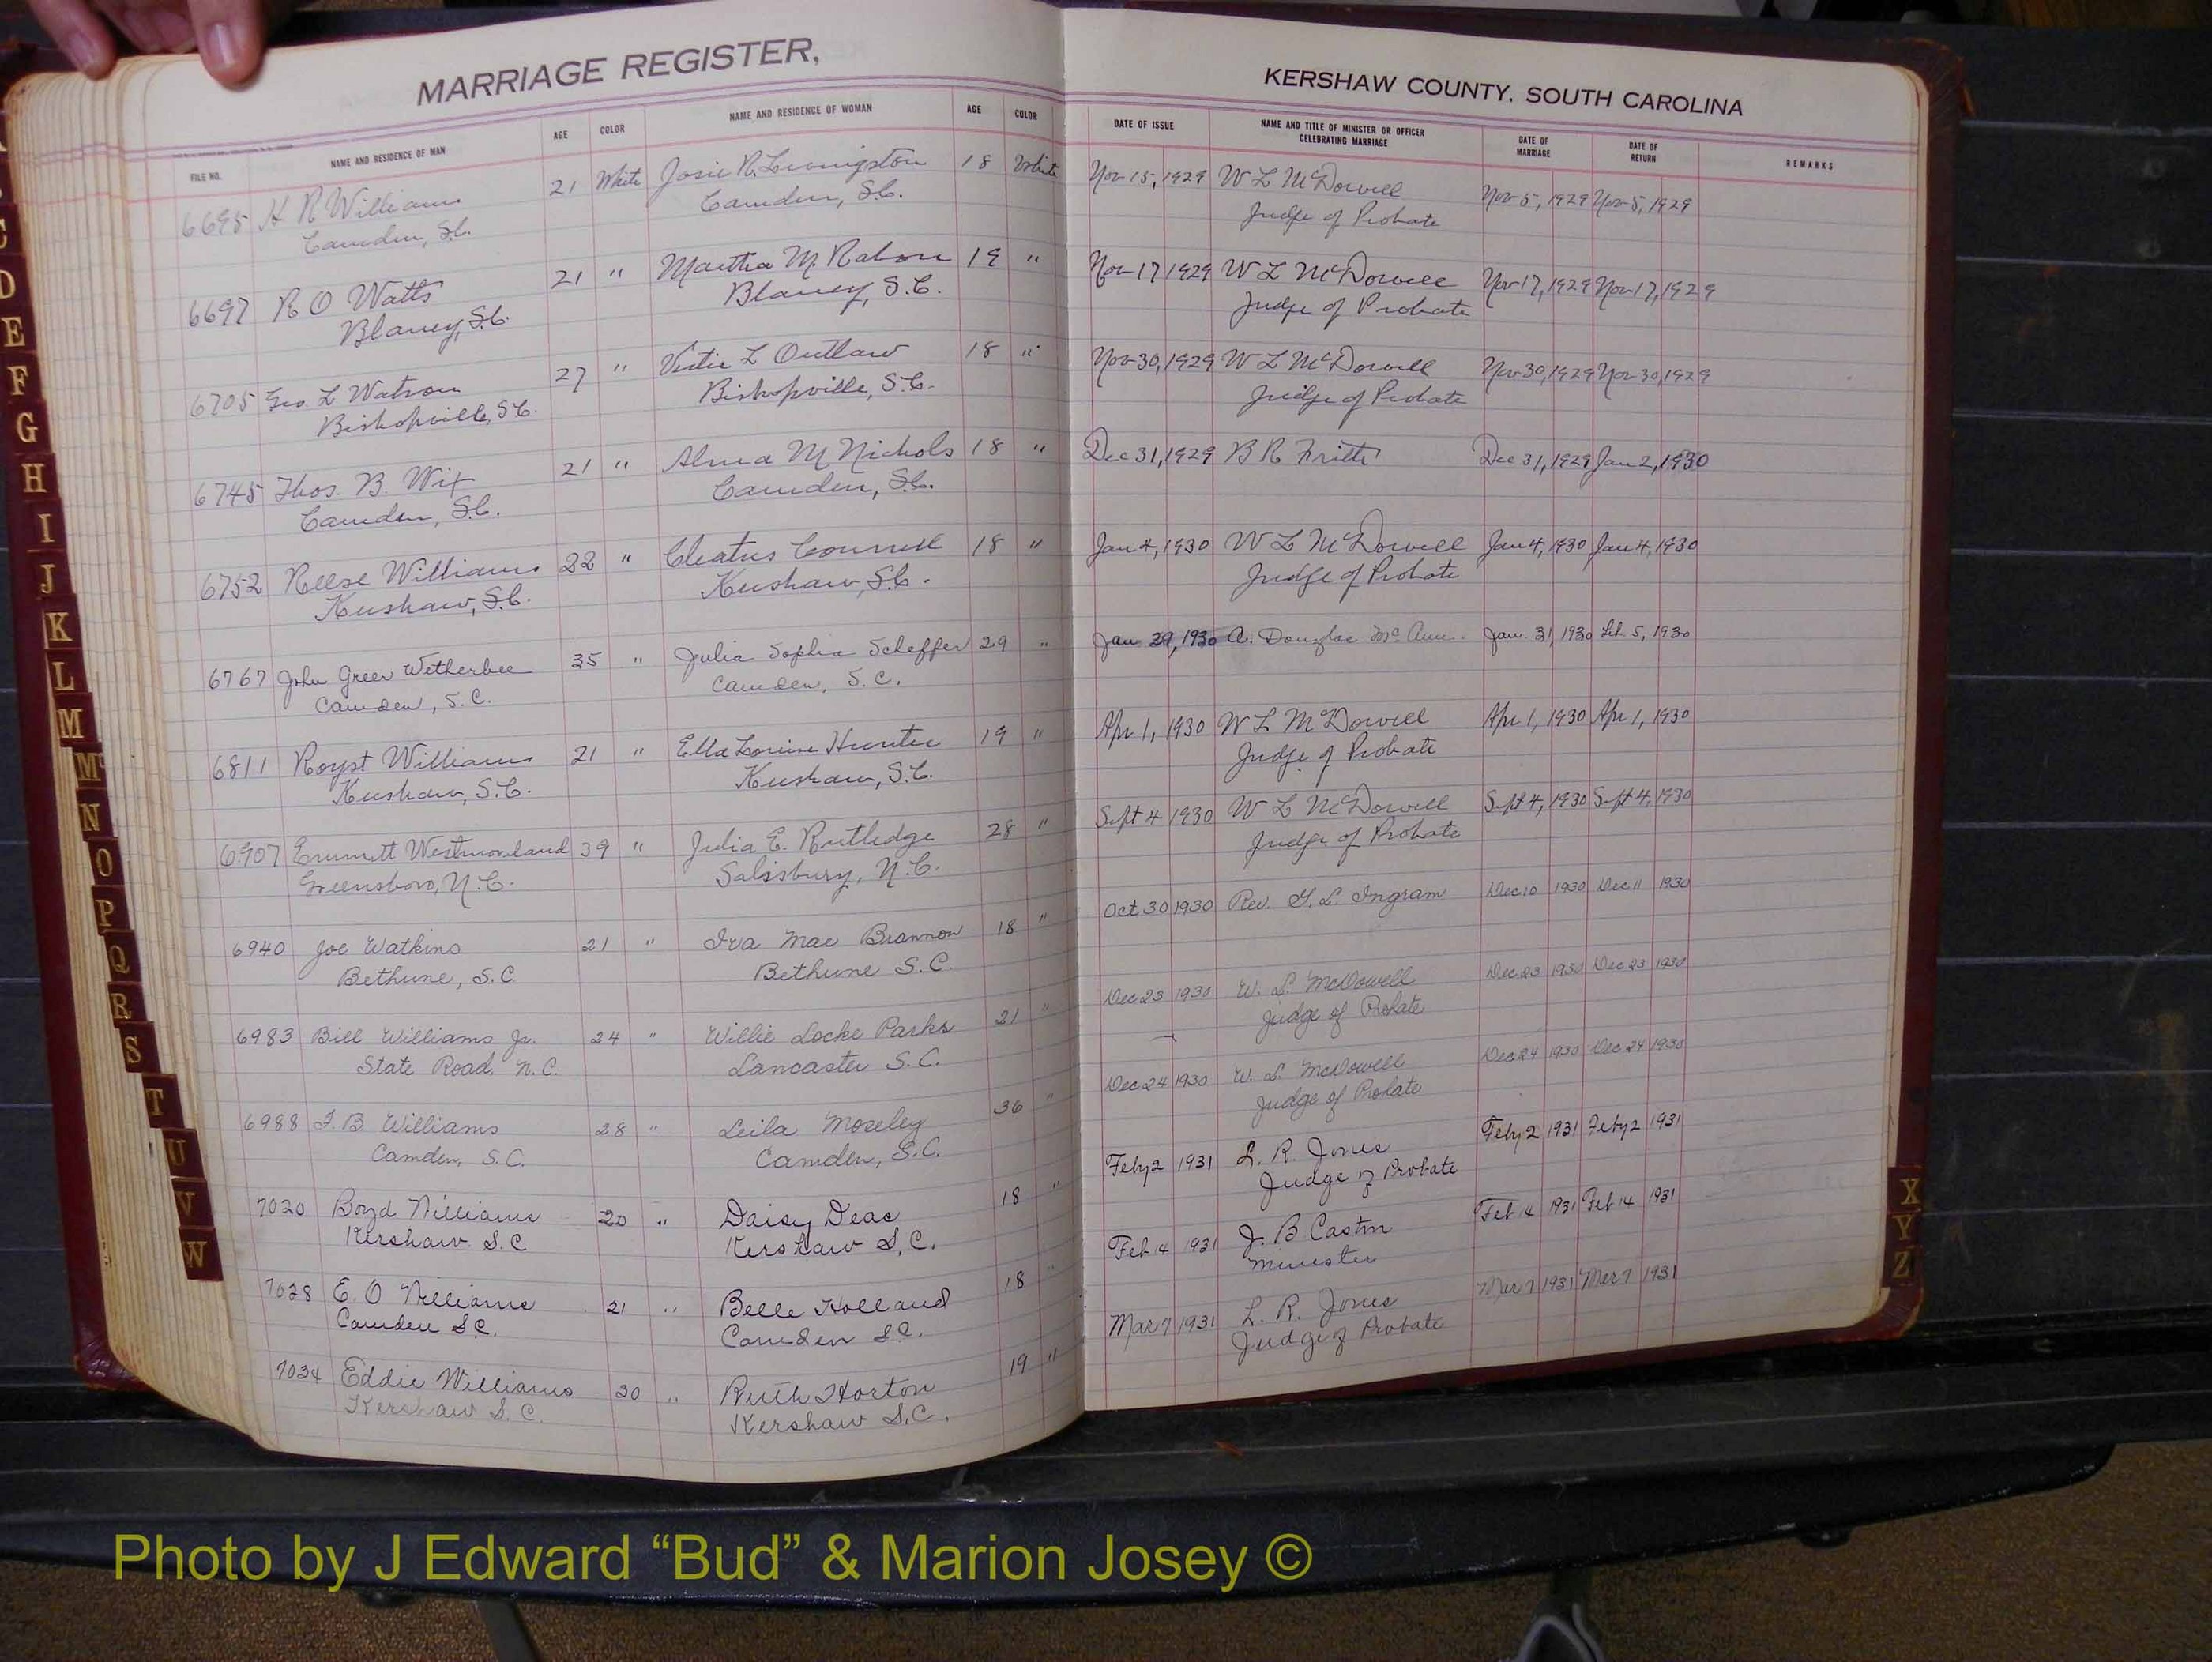 MARRIAGE REGISTER,
FILE NO. NAME AND RESIDENCE OF MAN AGE COLOR NAME AND RESIDENCE OF WOMAN AGE COLOR
6695 H R Williams 21 White Josie R. Livingston 18 White
Camden, S.C. Camden, S.C.
6697 R O Watts 21 " Martha M. Rabon 19 "
Blaney, S.C. Blaney, S.C.
6705 Geo. L Watson 27 " L Outlaw 18 "
Bishopville, S.C. Bishopville, S.C.
6745 Thos. B. Wix 21 " Alma M Nichols 18 "
Camden, S.C. Camden, S.C.
6752 Reese Williams 22 " Cleatus Connell 18 "
Kershaw, S.C. Kershaw, S.C.
6767 John Greer Wetherbee 35 " Julia Sophia Scheffer 29 "
Camden, S.C. Camden, S.C.
6811 Royst Williams 21 " Ella Louise Hunter 19 "
Kershaw, S.C. Kershaw, S.C.
6907 Emmett Westmoreland 39 " Julia E. Rutledge 28 "
Greensboro, N.C. Salisbury, N.C.
6940 Joe Watkins 21 " Iva Mae Brannon 18 "
Bethune, S.C Bethune S.C.
6983 Bill Williams Jr. 24 " Willie Locke Parks 21 "
State Road, N.C. Lancaster S.C.
6988 J. B Williams 28 " Leila Moseley 36 "
Camden, S.C. Camden, S.C.
7020 Boyd Williams 20 " Daisy Deas 18 "
Kershaw S.C Kershaw S.C.
7028 E. O Williams 21 " Belle Holland 18 "
Camden S.C. Camden S.C.
7034 Eddie Williams 20 " Ruth Horton 19 "
Kershaw S.C. Kershaw S.C.
KERSHAW COUNTY, SOUTH CAROLINA
DATE OF ISSUE NAME AND TITLE OF MINISTER OR OFFICER CELEBRATING MARRIAGE DATE OF MARRIAGE DATE OF RETURN REMARKS
Nov 15, 1929 W L McDowell Nov 5, 1929 Nov 5, 1929
Judge of Probate
Nov 17 1929 W L McDowell Nov 17, 1929 Nov 17, 1929
Judge of Probate
Nov 30, 1929 W L McDowell Nov 30, 1929 Nov 30, 1929
Judge of Probate
Dec 31, 1929 B R Fritts Dec 31, 1929 Jan 2, 1930
Jan 4, 1930 W L McDowell Jan 4, 1930 Jan 4, 1930
Judge of Probate
Jan 29, 1930 A. Douglas Jan. 31, 1930 Feb. 5, 1930
Apr 1, 1930 W L McDowell Apr 1, 1930 Apr 1, 1930
Judge of Probate
Sept 4 1930 W L McDowell Sept 4, 1930 Sept 4, 1930
Judge of Probate
Oct 30 1930 Rev. Ingram Dec 10 1930 Dec 11 1930
Dec 23 1930 W. L. McDowell Dec 23 1930 Dec 23 1930
Judge of Probate
Dec 24 1930 W. L. McDowell Dec 24 1930 Dec 24 1930
Judge of Probate
Feby 2 1931 L. R. Jones Feby 2 1931 Feby 2 1931
Judge of Probate
Feb 14 1931 J. B Caston Feb 14 1931 Feb 14 1931
Minister
Mar 7 1931 L. R. Jones Mar 7 1931 Mar 7 1931
Judge of Probate
D
E
F
G
H
I
J
K
L
M
Mc
N
O
P
Q
R
S
T
U
V
W
X
Y
Z
Photo by J Edward “Bud” & Marion Josey ©